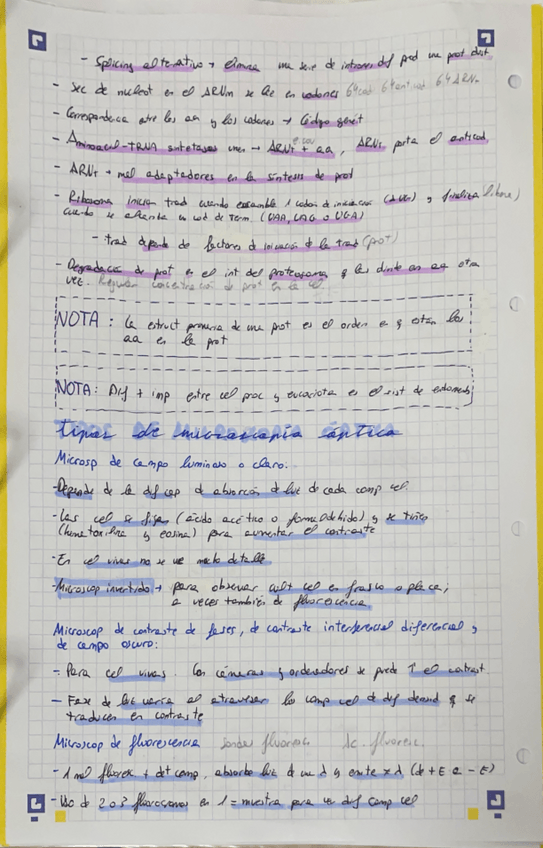 - Splicing alternativo → elimina una serie de intrones dif prod una prot dist
- Sec de nucleot en el ARNm se lee en codones 64 cod
- Correspondencia entre los aa y los codones → Código genét
- Aminoacil-tRNA sintetasas unen → ARNt + aa, ARNt porta el anticod
- ARNt → mol adaptadores en la síntesis de prot
- Ribosoma inician trad cuando ensambla 1 codón de iniciación (AUG) y finaliza
cuando se alcanza un cod de term. (UAA, UAG o UGA)
- trad depende de factores de iniciación d la trad (prot)
- Degradación de prot en el int del proteosoma y las divide en aa otra
vez. Regulan concentración de prot en la cel.
NOTA : la estruct primaria de una prot es el orden e q están los
aa en la prot
NOTA: Dif + imp entre cel proc y eucariota es el sist de endomemb
Tipos de microscopía óptica
Microsp de campo luminoso o claro:
- Depende de la dif cap d absorción d luz d cada comp cel.
- Las cel se fijan (ácido acético o formaldehido) y se tiñen
(hematoxilina y eosina) para aumentar el contraste
- En cel vivas no se ve mucho detalle
- Microscop invertido → para observar cult cel en frasco o placa;
a veces también de fluorescencia
Microscop de contraste de fases, de contraste interferencial diferencial y
de campo oscuro:
- Para cel vivas. Con cámaras y ordenadores se puede ↑ el contrast
- Fase de luz varía al atravesar los comp cel d dif densid q se
traducen en contraste
Microscop de fluorescencia sondas fluoresc
- 1 mol fluoresc + det comp, absorbe luz d una λ y emite x λ (d + E a - E)
- Uso de 2 o 3 fluorocromos en 1 = muestra para ver dif comp cel